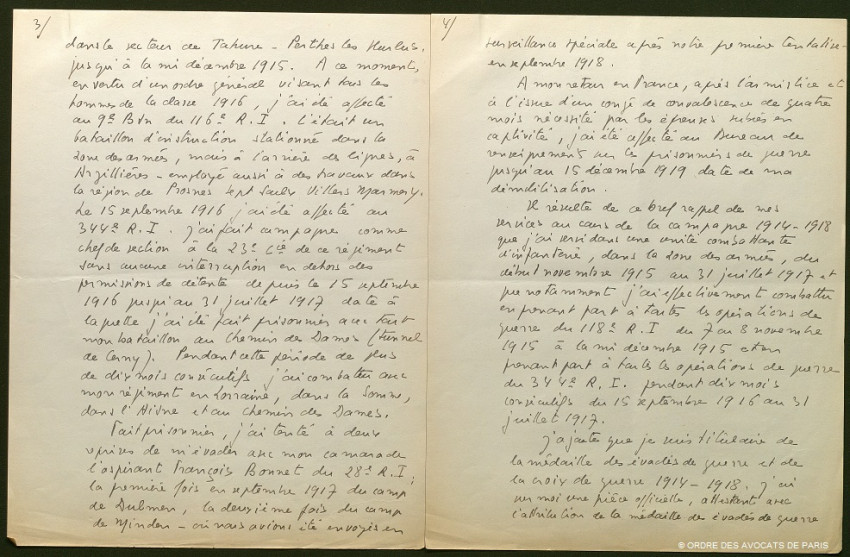 3/
dans le secteur de Tahure - Perthes les Hurlus,
jusqu'à la mi décembre 1915. A ce moment,
en vertu d'un ordre général visant tous les
hommes de la classe 1916, j'ai été affecté
au 9e Btn du 116e R.I. C'était un
bataillon d'instruction stationné dans la
zone des armées, mais à l'arrière des lignes, à
Arzillières - employé aussi à des travaux dans
la région de Prosnes Sept Saulx Villers Marmery.
Le 15 septembre 1916 j'ai été affecté au
344e R.I. J'ai fait campagne comme
chef de section à la 23e Cie de ce régiment
sans aucune interruption en dehors des
permissions de détente depuis le 15 septembre
1916 jusqu'au 31 juillet 1917 date à
laquelle j'ai été fait prisonnier avec tout
mon bataillon au Chemin des Dames (tunnel
de Cerny). Pendant cette période de plus
de dix mois consécutifs j'ai combattu avec
mon régiment en Lorraine, dans la Somme,
dans l'Aisne et au chemin des Dames.
Fait prisonnier, j'ai tenté à deux
reprises de m'évader avec mon camarade
l'aspirant François Bonnet du 28e R.I;
la première fois en septembre 1917 du camp
de Dulmen, la deuxième fois du camp
de Minden - où nous avions été envoyés en
4/
surveillance spéciale après notre première tentative -
en septembre 1918.
A mon retour en France, après l'armistice et
à l'issue d'un congé de convalescence de quatre
mois nécessité par les épreuves subies en
captivité, j'ai été affecté au Bureau de
renseignements sur les prisonniers de guerre
jusqu'au 15 décembre 1919 date de ma
démobilisation.
Il résulte de ce bref rappel de mes
services au cours de la campagne 1914-1918
que j'ai servi dans une unité combattante
d'infanterie, dans la zone des armées, du
début novembre 1915 au 31 juillet 1917 et
que notamment j'ai effectivement combattu
en prenant part à toutes les opérations de
guerre du 118e R.I du 7 au 8 novembre
1915 à la mi décembre 1915 et en
prenant part à toutes les opérations de guerre
du 344e R.I. pendant dix mois
consécutifs du 15 septembre 1916 au 31
juillet 1917.
J'ajoute que je suis titulaire de
la médaille des évadés de guerre et de
la croix de guerre 1914-1918. J'ai
sur moi une pièce officielle, attestant avec
l'attribution de la médaille des évadés de guerre
© ORDRE DES AVOCATS DE PARIS